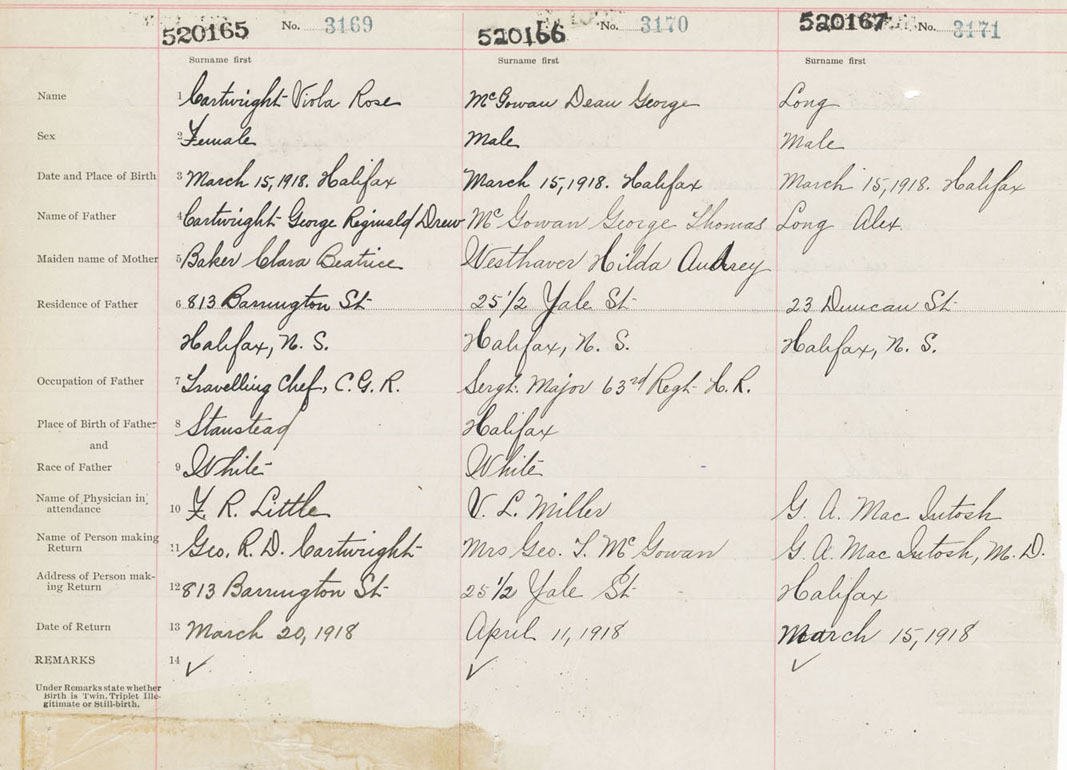 520165 No. 3169 520166 No. 3170 520167 No. 3171
Surname first Surname first Surname first
Name 1 Cartwright Viola Rose McGowan Dean George Long
Sex 2 Female Male Male
Date and Place of Birth 3 March 15, 1918. Halifax March 15, 1918. Halifax March 15, 1918. Halifax
Name of Father 4 Cartwright George Reginald Drew McGowan George Thomas Long Alex.
Maiden name of Mother 5 Baker Clara Beatrice Westhaver Hilda Audrey
Residence of Father 6 813 Barrington St 25 1/2 Yale St 23 Duncan St
Halifax, N. S. Halifax, N. S. Halifax, N. S.
Occupation of Father 7 Travelling Chef, C.G.R. Sergt. Major 63rd Regt H.R.
Place of Birth of Father 8 Stanstead Halifax
and
Race of Father 9 White White
Name of Physician in
attendance 10 F. R. Little V. L. Miller G. A. MacIntosh
Name of Person making
Return 11 Geo. R. D. Cartwright Mrs Geo. T. McGowan G. A. MacIntosh, M. D.
Address of Person mak-
ing Return 12 813 Barrington St 25 1/2 Yale St Halifax
Date of Return 13 March 20, 1918 April 11, 1918 March 15, 1918
REMARKS 14 ✓ ✓ ✓
Under Remarks state whether
Birth is Twin, Triplet Ille-
gitimate or Still-birth.